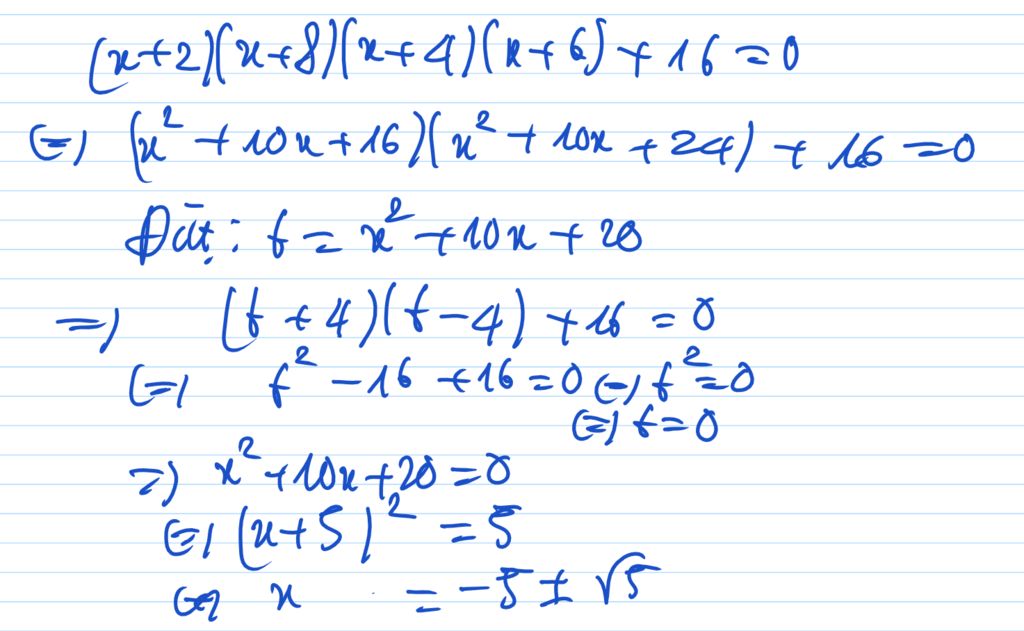 (x+2)(x+8)(x+4)(x+6) + 16 = 0
(=) (x² + 10x + 16)(x² + 10x + 24) + 16 = 0
Đặt : t = x² + 10x + 20
=) (t + 4)(t - 4) + 16 = 0
(=) t² - 16 + 16 = 0 (=) t² = 0
(=) t = 0
=) x² + 10x + 20 = 0
(=) (x + 5)² = 5
(=) x = -5 ± √5